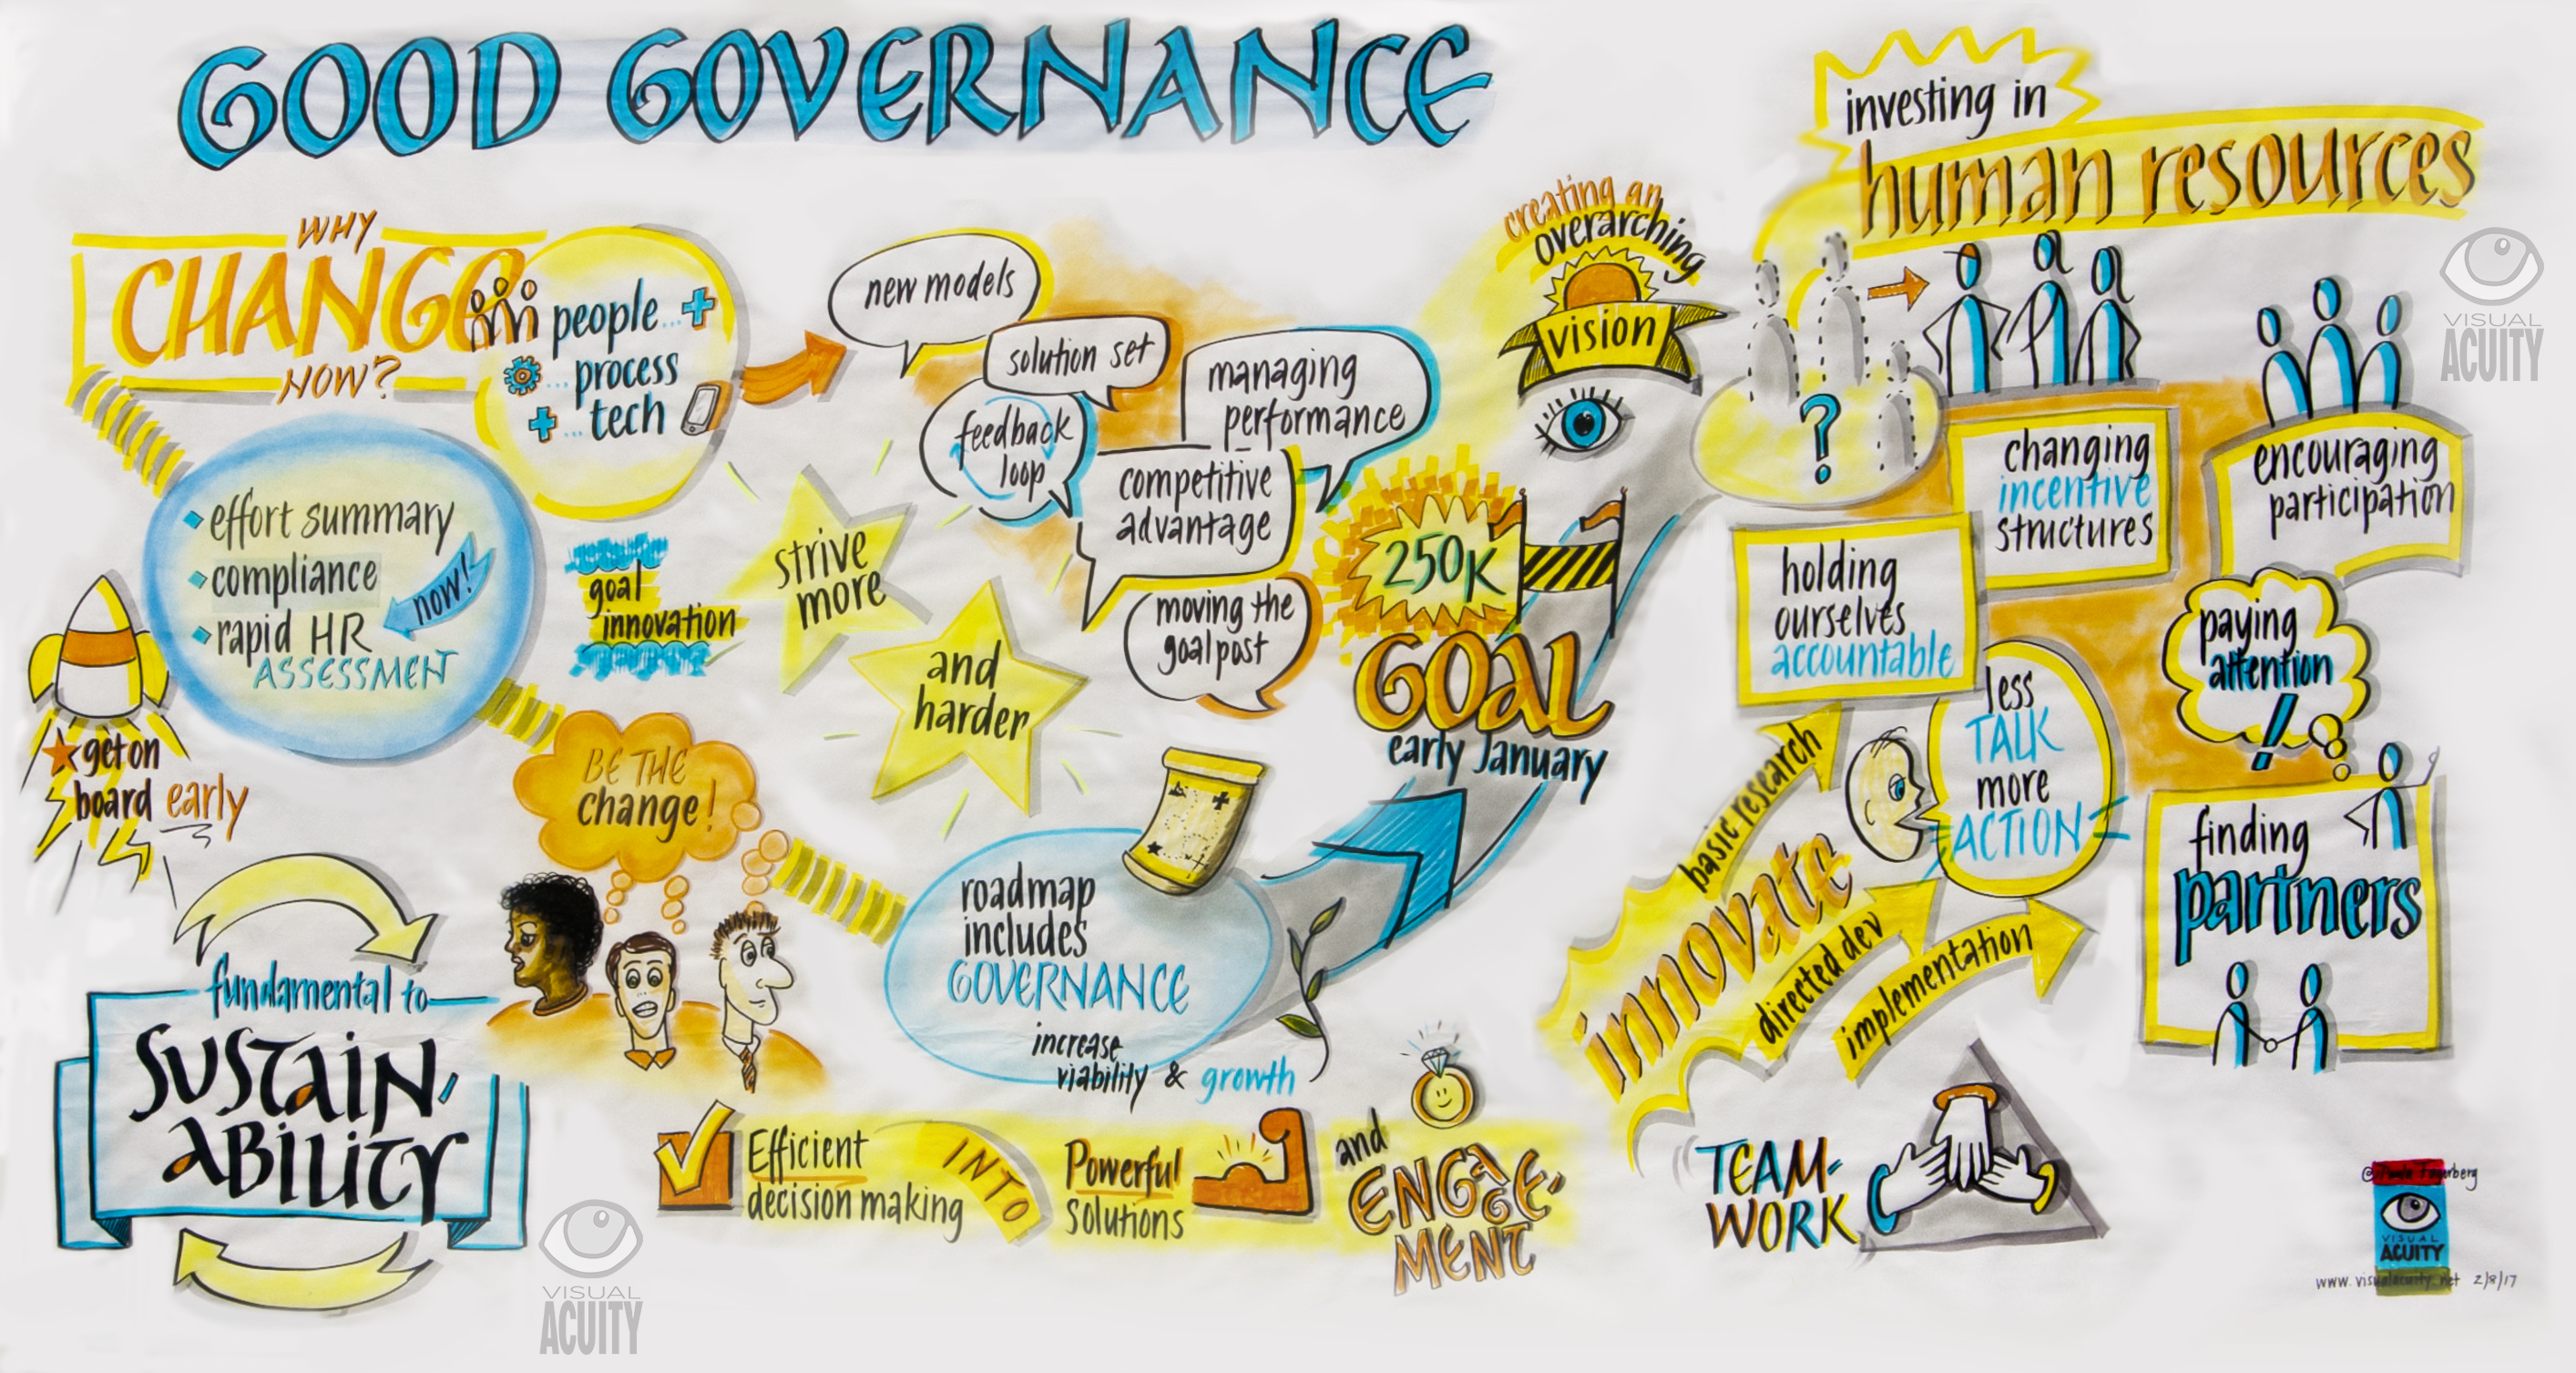 GOOD GOVERNANCE
WHY
CHANGE
NOW?
people... +
... process
+ ... tech
effort summary
compliance
rapid HR
ASSESSMENT
now!
get on
board early
fundamental to
SUSTAIN-
ABILITY
goal
innovation
BE THE
change!
strive
more
and
harder
new models
solution set
feedback
loop
managing
performance
competitive
advantage
moving the
goalpost
roadmap
includes
GOVERNANCE
increase
viability & growth
250K
GOAL
early January
creating an
overarching
vision
Efficient
decision making
INTO
Powerful
Solutions
and
ENGAGE-
MENT
investing in
human resources
?
changing
incentive
structures
holding
ourselves
accountable
encouraging
participation
paying
attention
!
less
TALK
more
ACTION
finding
partners
basic research
innovate
directed dev
implementation
TEAM-
WORK
VISUAL
ACUITY
VISUAL
ACUITY
Fagerberg
VISUAL
ACUITY
www.visualacuity.net 2/8/17